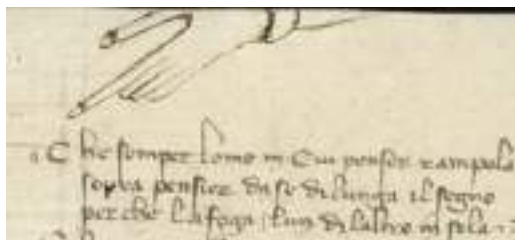 C he sempre lomo in Cui pensier rampola
sovra pensier da se dilunga il segno
per che la foga lun de laltro insola